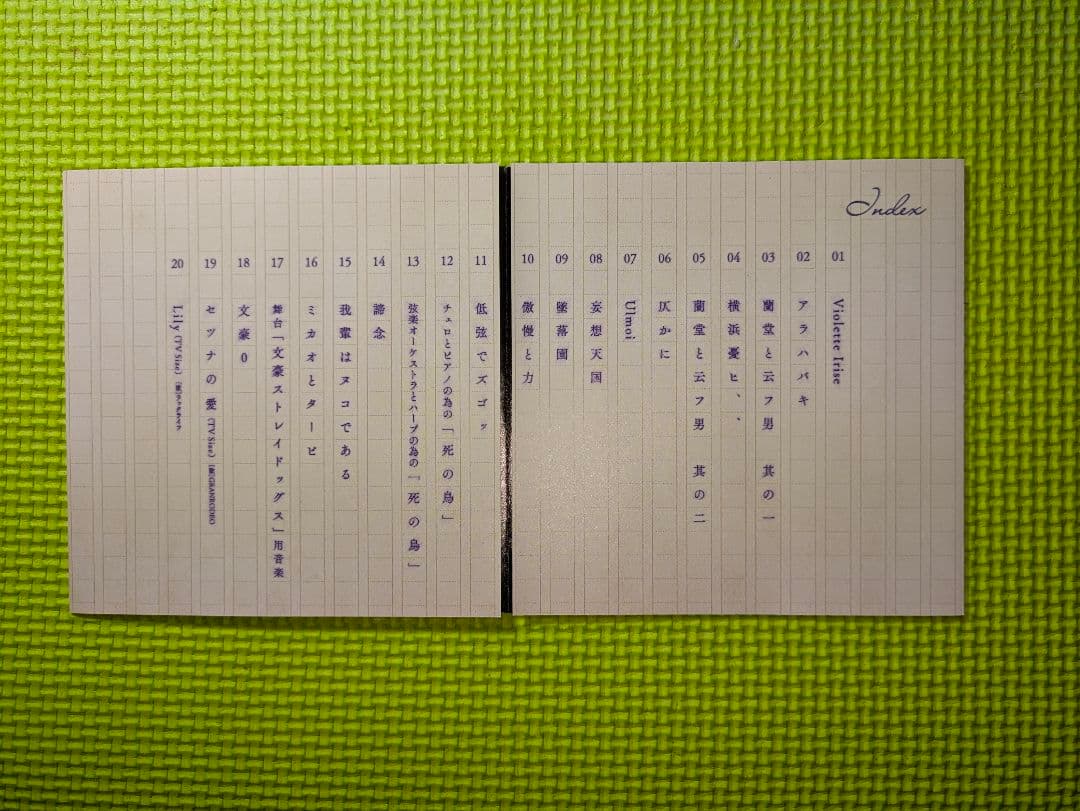 Index
01 Violette Irise
02 アラハバキ
03 蘭堂と云フ男 其の一
04 横浜憂ヒ、、
05 蘭堂と云フ男 其の二
06 仄かに
07 Ulmoi
08 妄想天国
09 墜落園
10 傲慢と力
11 低弦でズゴッ
12 チェロとピアノの為の「死の鳥」
13 弦楽オーケストラとハープの為の「死の鳥」
14 諦念
15 我輩はヌコである
16 ミカオとタービ
17 舞台「文豪ストレイドッグス」用音楽
18 文豪0
19 セツナの愛 (TV Size) (歌)GRANRODEO
20 Lily (TV Size)